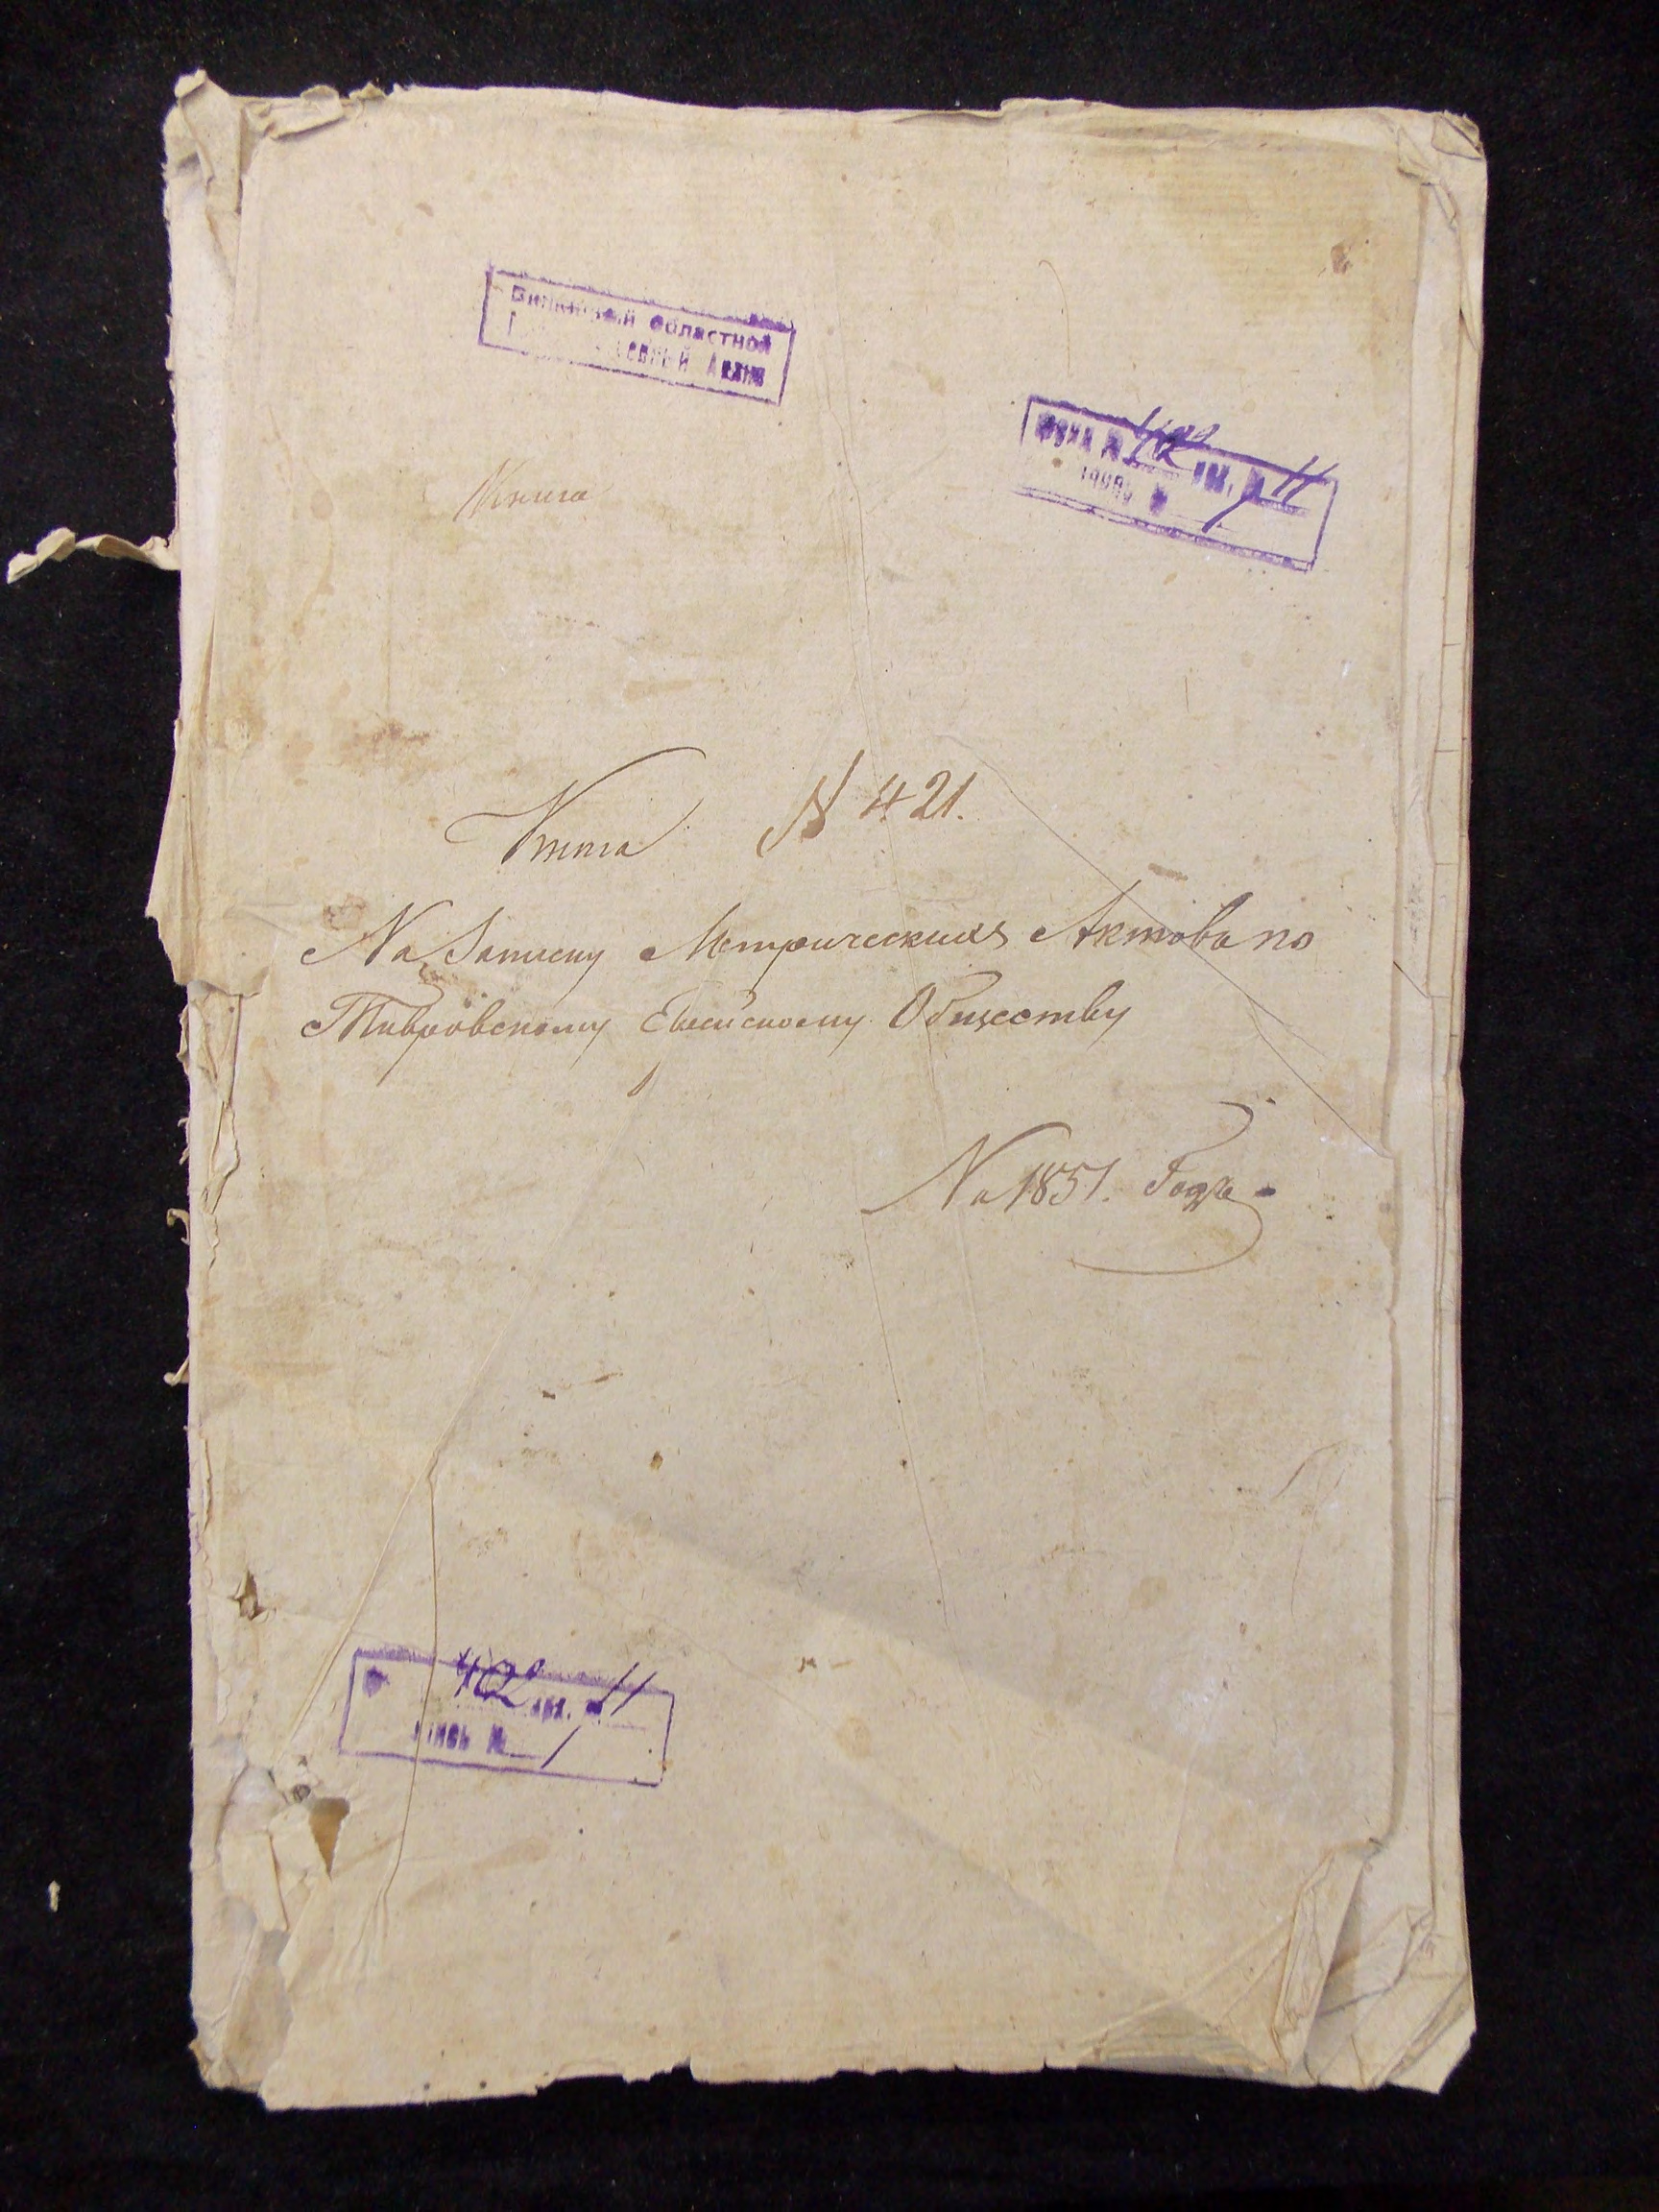 Винницкий Областной
Архив
Фонд № 402 арх. № 11
Опись № 1
Книга
Книга № 421.
На Записку Метрическихъ Актовъ по
Тывровскому Еврейскому Обществу
На 1851. Годъ
402 арх. № 11
Опись № 1